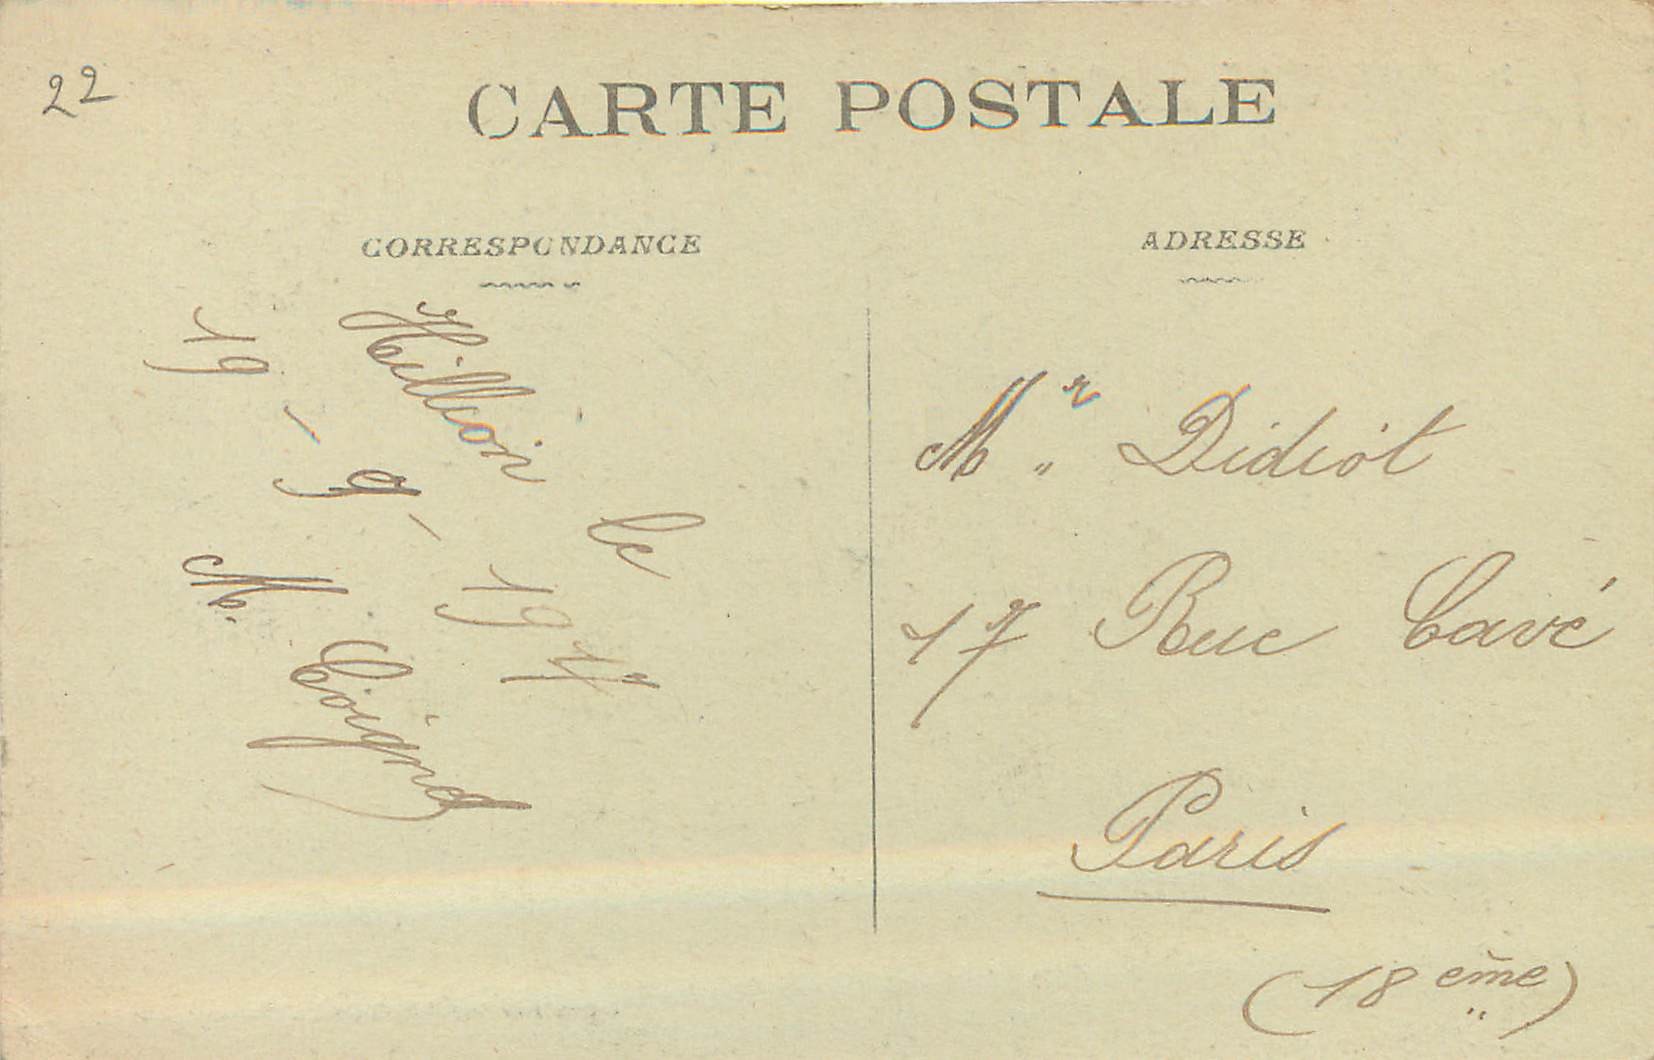 22
CARTE POSTALE
CORRESPONDANCE
ADRESSE
Hillion le
19 - 9 - 1917
M. Coigno
Mr Didiot
17 Rue Cavé
Paris
(18 eme)